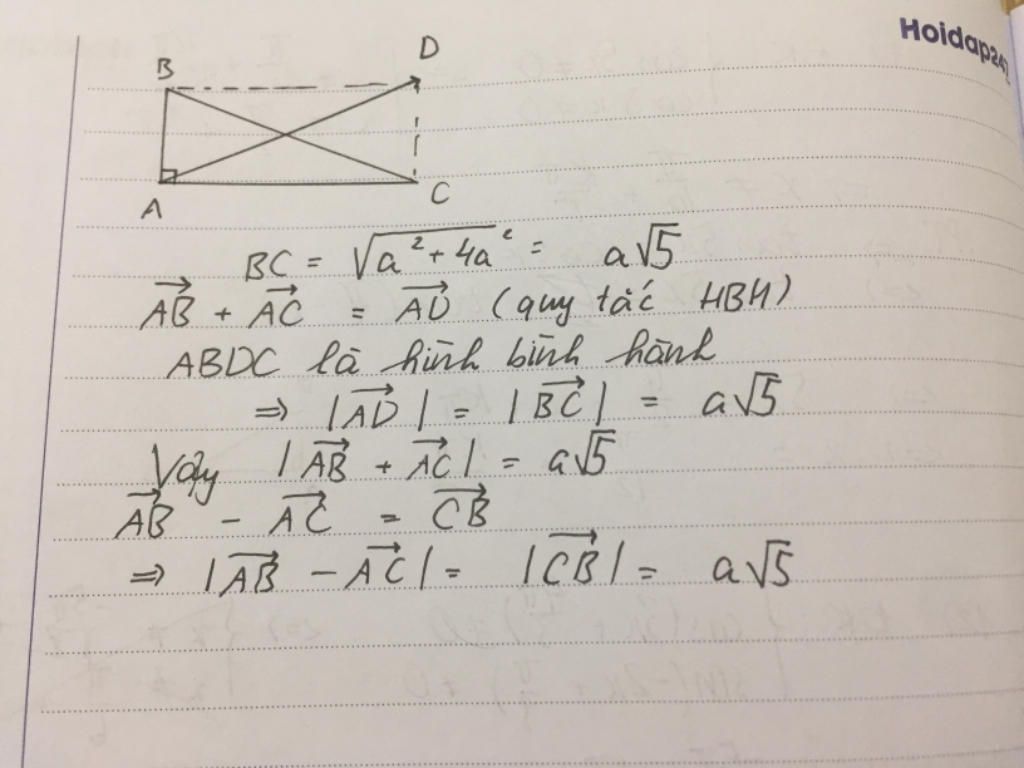 Hoidap247
B
D
A
C
BC = √(a² + 4a²) = a√5
\overrightarrow{AB} + \overrightarrow{AC} = \overrightarrow{AD} (quy tắc HBH)
ABDC là hình bình hành
=> |\overrightarrow{AD}| = |\overrightarrow{BC}| = a√5
Vậy |\overrightarrow{AB} + \overrightarrow{AC}| = a√5
\overrightarrow{AB} - \overrightarrow{AC} = \overrightarrow{CB}
=> |\overrightarrow{AB} - \overrightarrow{AC}| = |\overrightarrow{CB}| = a√5